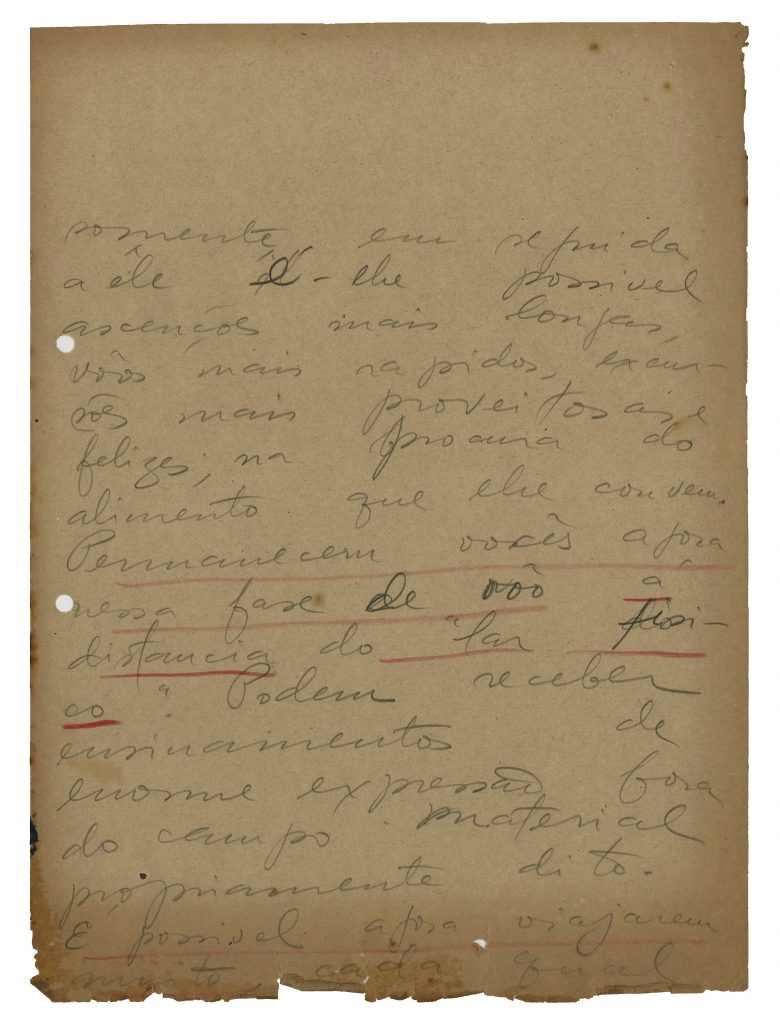 somente, em seguida
a êle é-lhe possivel
ascenções mais longas,
vôos mais rapidos, excur-
sões mais proveitosas e
felizes, na procura do
alimento que lhe convem.
Permanecem vocês agora
nessa fase de vôo á
distancia do "lar fisi-
co". Podem receber
ensinamentos de
enorme expressão fora
do campo material
propriamente dito.
É possivel agora viajarem
muito, cada qual